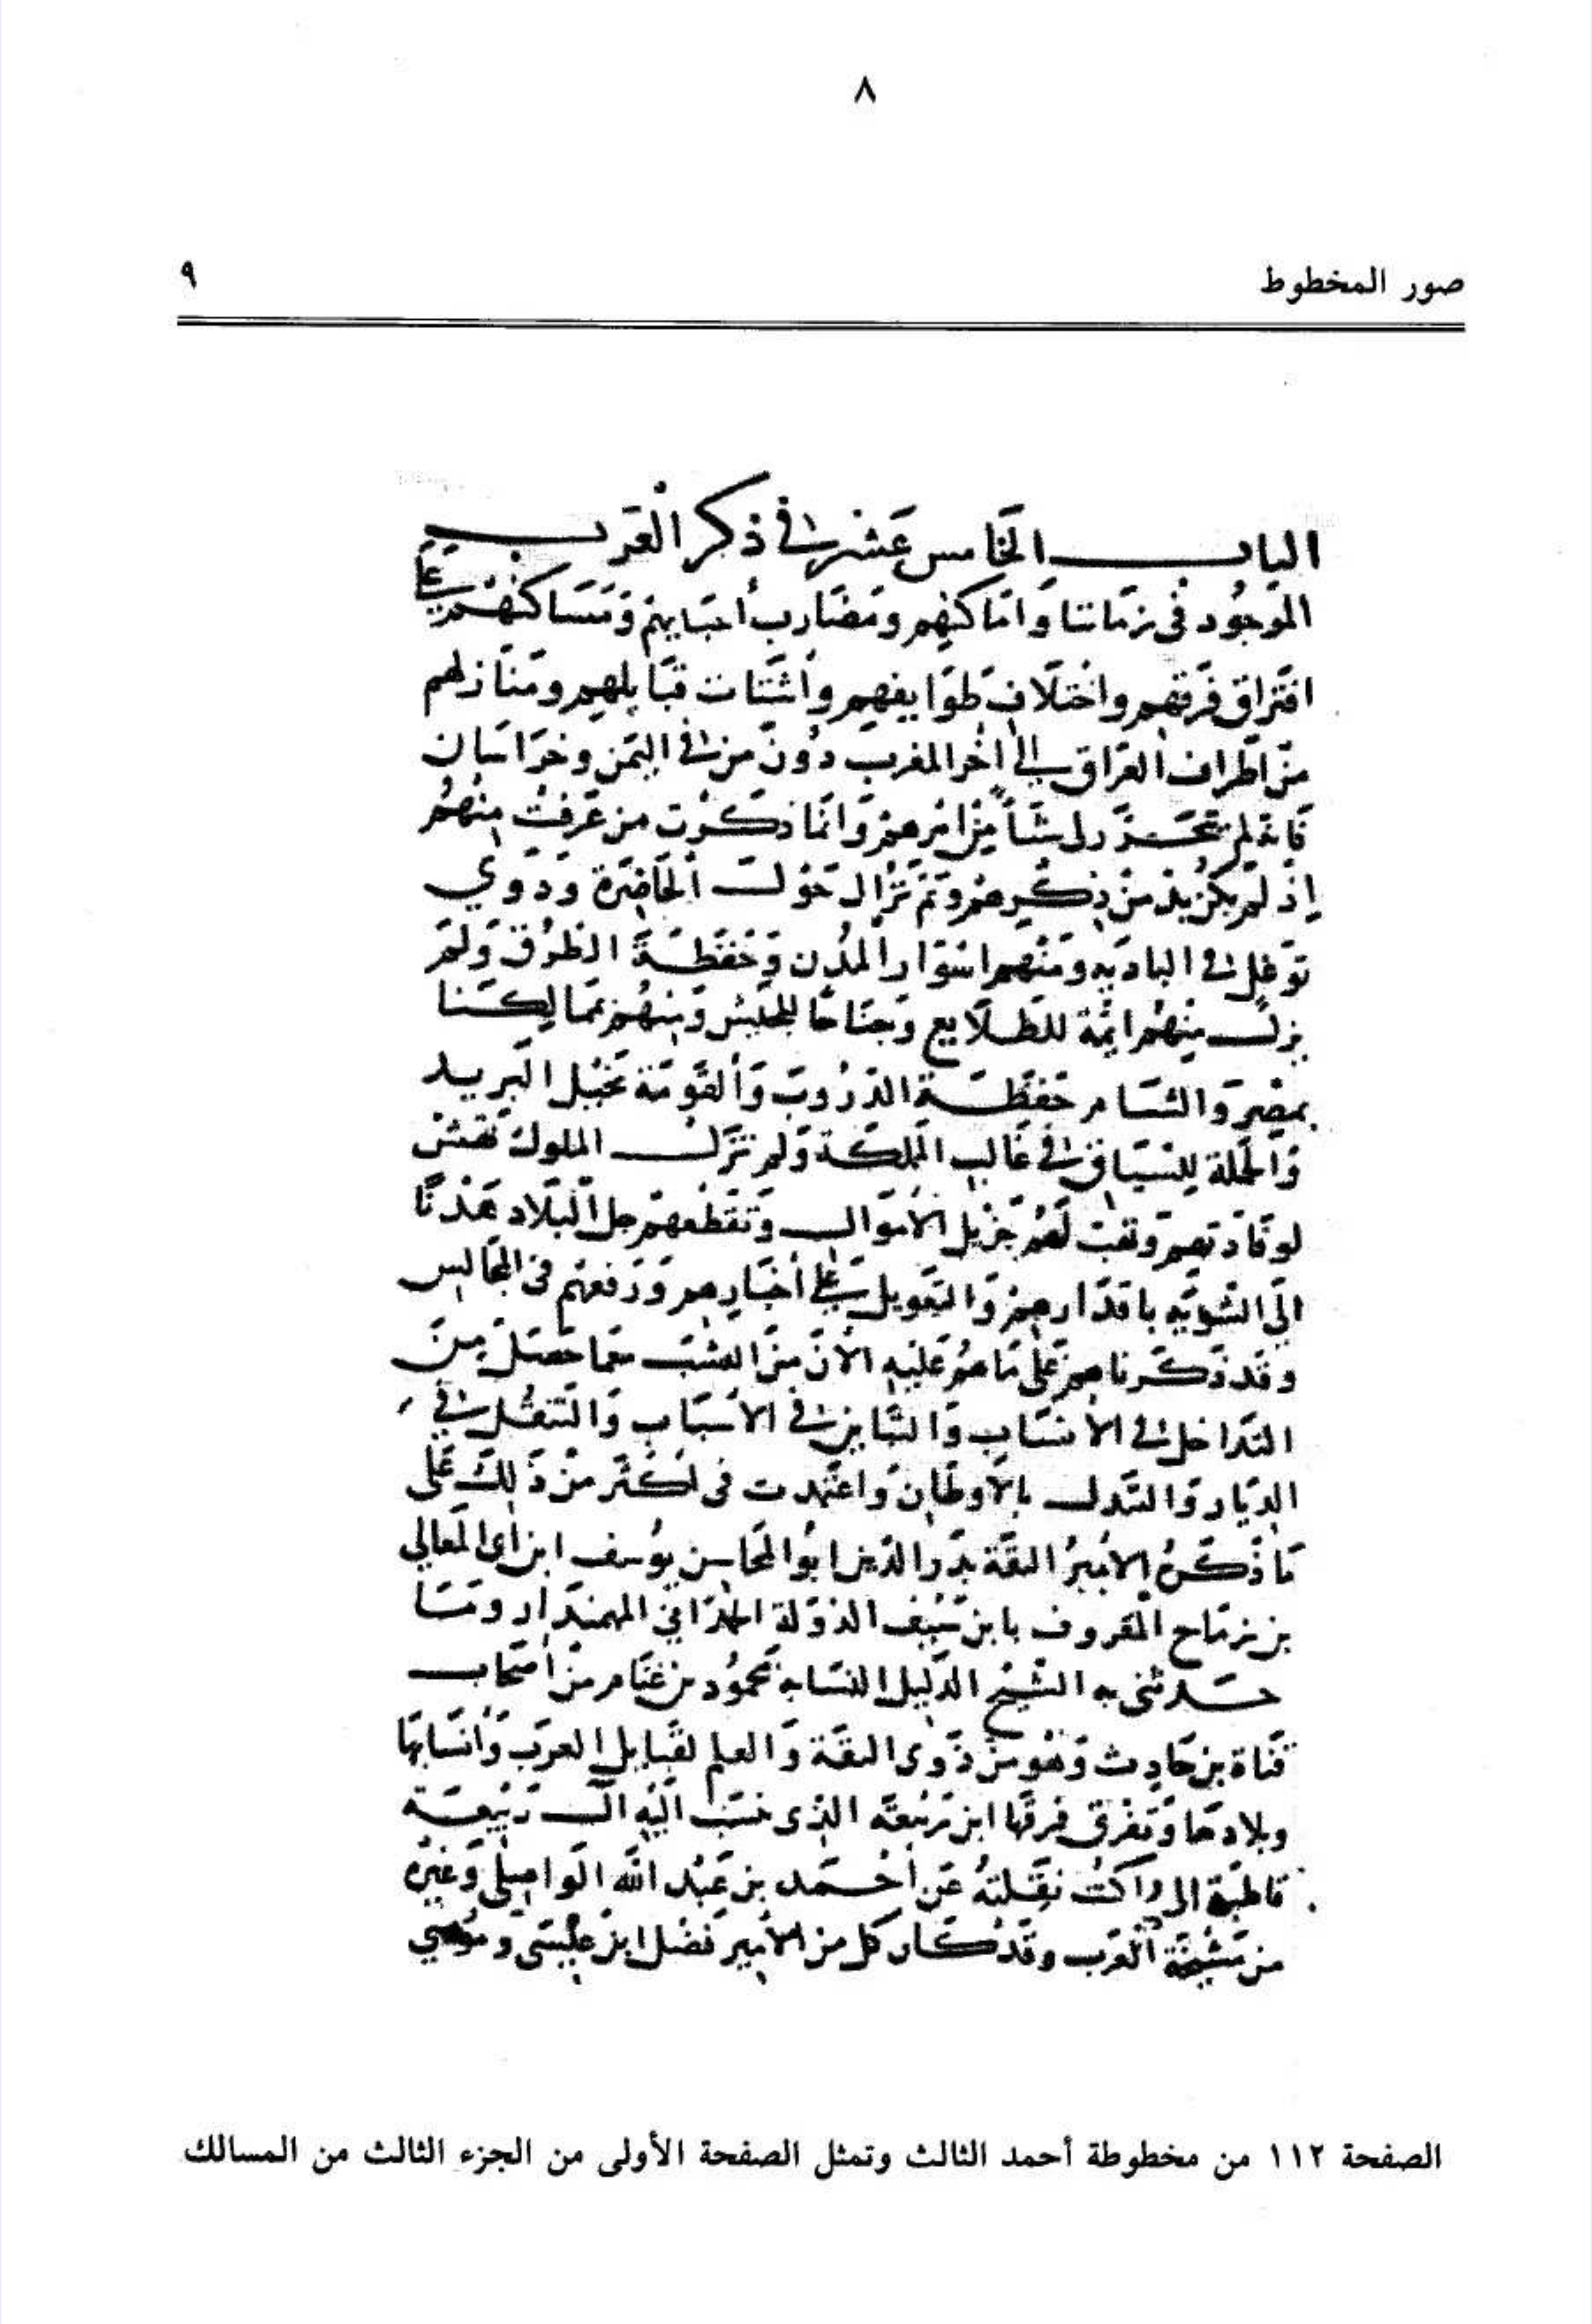 ٨
صور المخطوط
٩
الباب الخامس عشر في ذكر العرب
الموجود في زماننا وأماكنهم ومضارب أحيايهم ومساكنهم على
افتراق فرقهم واختلاف طوايفهم وأشتات قبايلهم ومنازلهم
من أطراف العراق إلى آخر المغرب دون من في اليمن وخراسان
فانه لم يتحرر لى شيأ من امرهم وانما ذكرت من عرفت منهم
إذ لم يكن بد من ذكرهم ولم تزال حول الحاضرة وذوي
توغل في الباديه ومنهم اسوار المدن وحفظة الطرق ولم
يزل منهم ايمة للطلايع وجناحا للجيش ومنهم بممالكنا
بمصر والشام حفظة الدروب والقومة بخيل البريد
والحملة للسياق في غالب المملكة ولم تزل الملوك
لوفادتهم وتهب لهم جزيل الأموال وتقطعهم جل البلاد هذا
الى التنويه باقدارهم والتعويل على أخبارهم ورفعهم في المجالس
وقد ذكرناهم على ما هم عليه الآن من النسب مما حصل من
التداخل في الأنساب والتباين في الأسباب والتنقل في
الديار والتبدل بالأوطان واعتمدت في أكثر من ذلك على
ما ذكره الأمير الثقة بدر الدين ابو المحاسن يوسف ابن أبى المعالي
بن زماح المعروف بابن سيف الدولة الحمداني المهمندار ومما
حدثنى به الشيخ الدليل النسابة محمود بن عنام من أصحاب
قناة بن حارث وهو من ذوى الثقة والعلم لقبايل العرب وأنسابها
وبلادها وتفرق فرقها ابن ربيعة الذى نسب اليه آل ربيعة
قاطبة الى ما كنت نقلته عن أحمد بن عبد الله الواصلي وغيره
من مشيخة العرب وقد كان كل من الأمير فضل ابن عيسى وموسى
الصفحة ١١٢ من مخطوطة أحمد الثالث وتمثل الصفحة الأولى من الجزء الثالث من المسالك